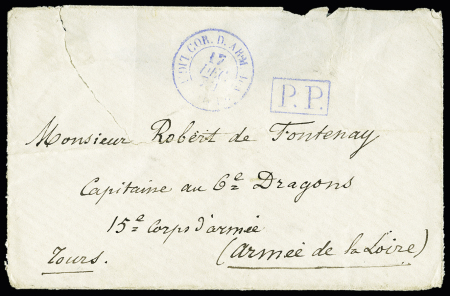 COR. D. ARM
17
DEC
P.P.
Monsieur Robert de Fontenay
Capitaine au 6e Dragons
15e Corps d'armée
Tours. (Armée de la Loire)